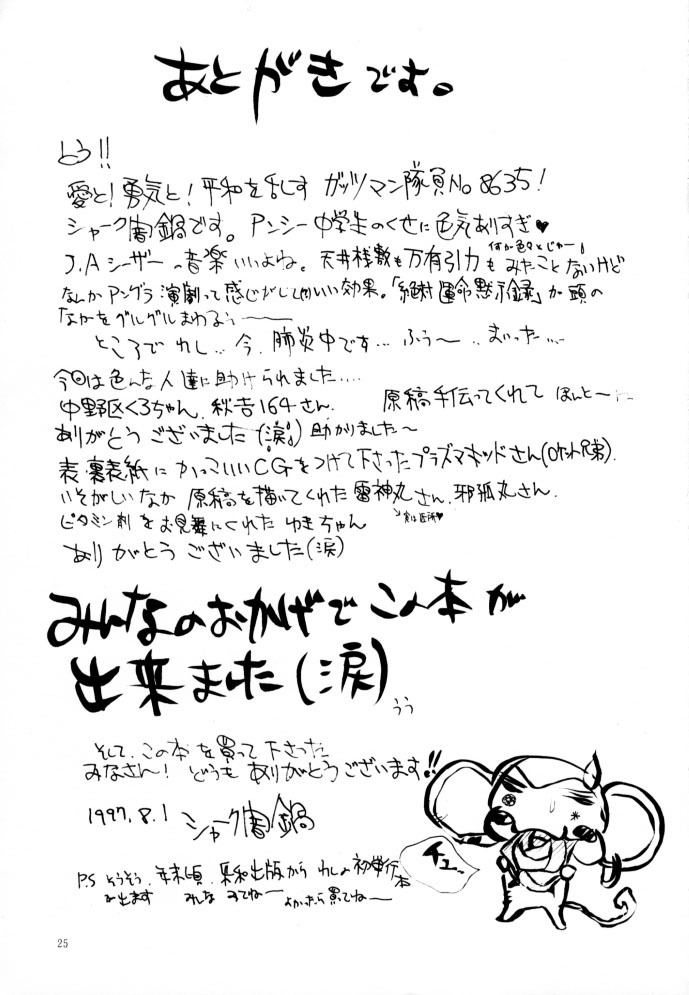 あとがきです。
とう!!
愛と!勇気と!平和を乱すガッツマン隊員No8635!
シャーク闇鍋です。アンシー中学生のくせに色気ありすぎ♥
J.Aシーザーの音楽いいよね。天井桟敷も万有引力もみたことないけど
なんかアングラ演劇って感じがしていい効果。「絶対運命黙示録」が頭の
なかをグルグルまわるぅ〜
ところでわし…今、肺炎中です…ふぅ〜…まいった…
今回は色んな人達に助けられました…
中野区くろちゃん、秋吉164さん、原稿手伝ってくれてほんと〜に
ありがとうございました(涙)助かりました〜
表・裏表紙にかっこいいCGをつけて下さったプラズマキッドさん(ロケット兄弟)、
いそがしいなか原稿を描いてくれた雷神丸さん、邪狐丸さん、
ビタミン剤をお見舞にくれたゆきちゃん
ありがとうございました(涙)
みんなのおかげでこの本が
出来ました(涙)
うぅ
そして、この本を買って下さった
みなさん!どうもありがとうございます!!
1997.8.1 シャーク闇鍋
チュー
P.S そうそう、年末頃、東和出版からわしの初単行本
を出ます みんなみてね〜 よかったら買てね〜
25